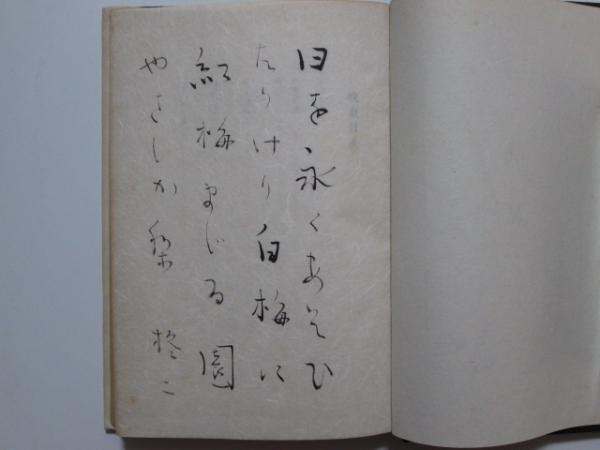 日を永くあそひ
たりけり白梅に
紅梅まじる園
やさしか梨 柊二